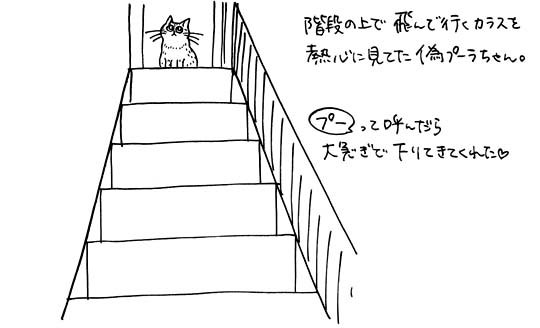 階段の上で飛んで行くカラスを
熱心に見てた偽プーラちゃん。
プーって呼んだら
大急ぎで下りてきてくれた♡